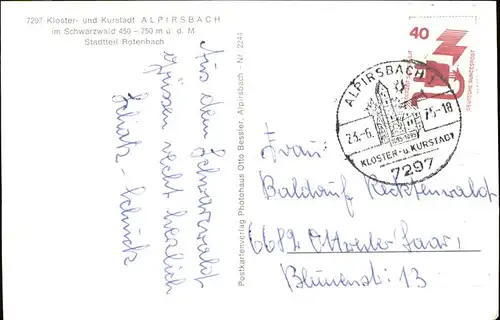 7297 Kloster- und Kurstadt ALPIRSBACH
im Schwarzwald 450 – 750 m ü. d. M
Stadtteil Rötenbach
Aus dem Schwarzwald
grüsen recht herzlich
Schatz - Schück
Postkartenverlag Photohaus Otto Bessler, Alpirsbach - Nr. 2244
40
DEUTSCHE BUNDESPOST
ALPIRSBACH 1
23.-6. 75-18
KLOSTER- u. KURSTADT
7297
Frau:
Baldauf
6682 Ottweiler Saar,
Blumenstr. 13